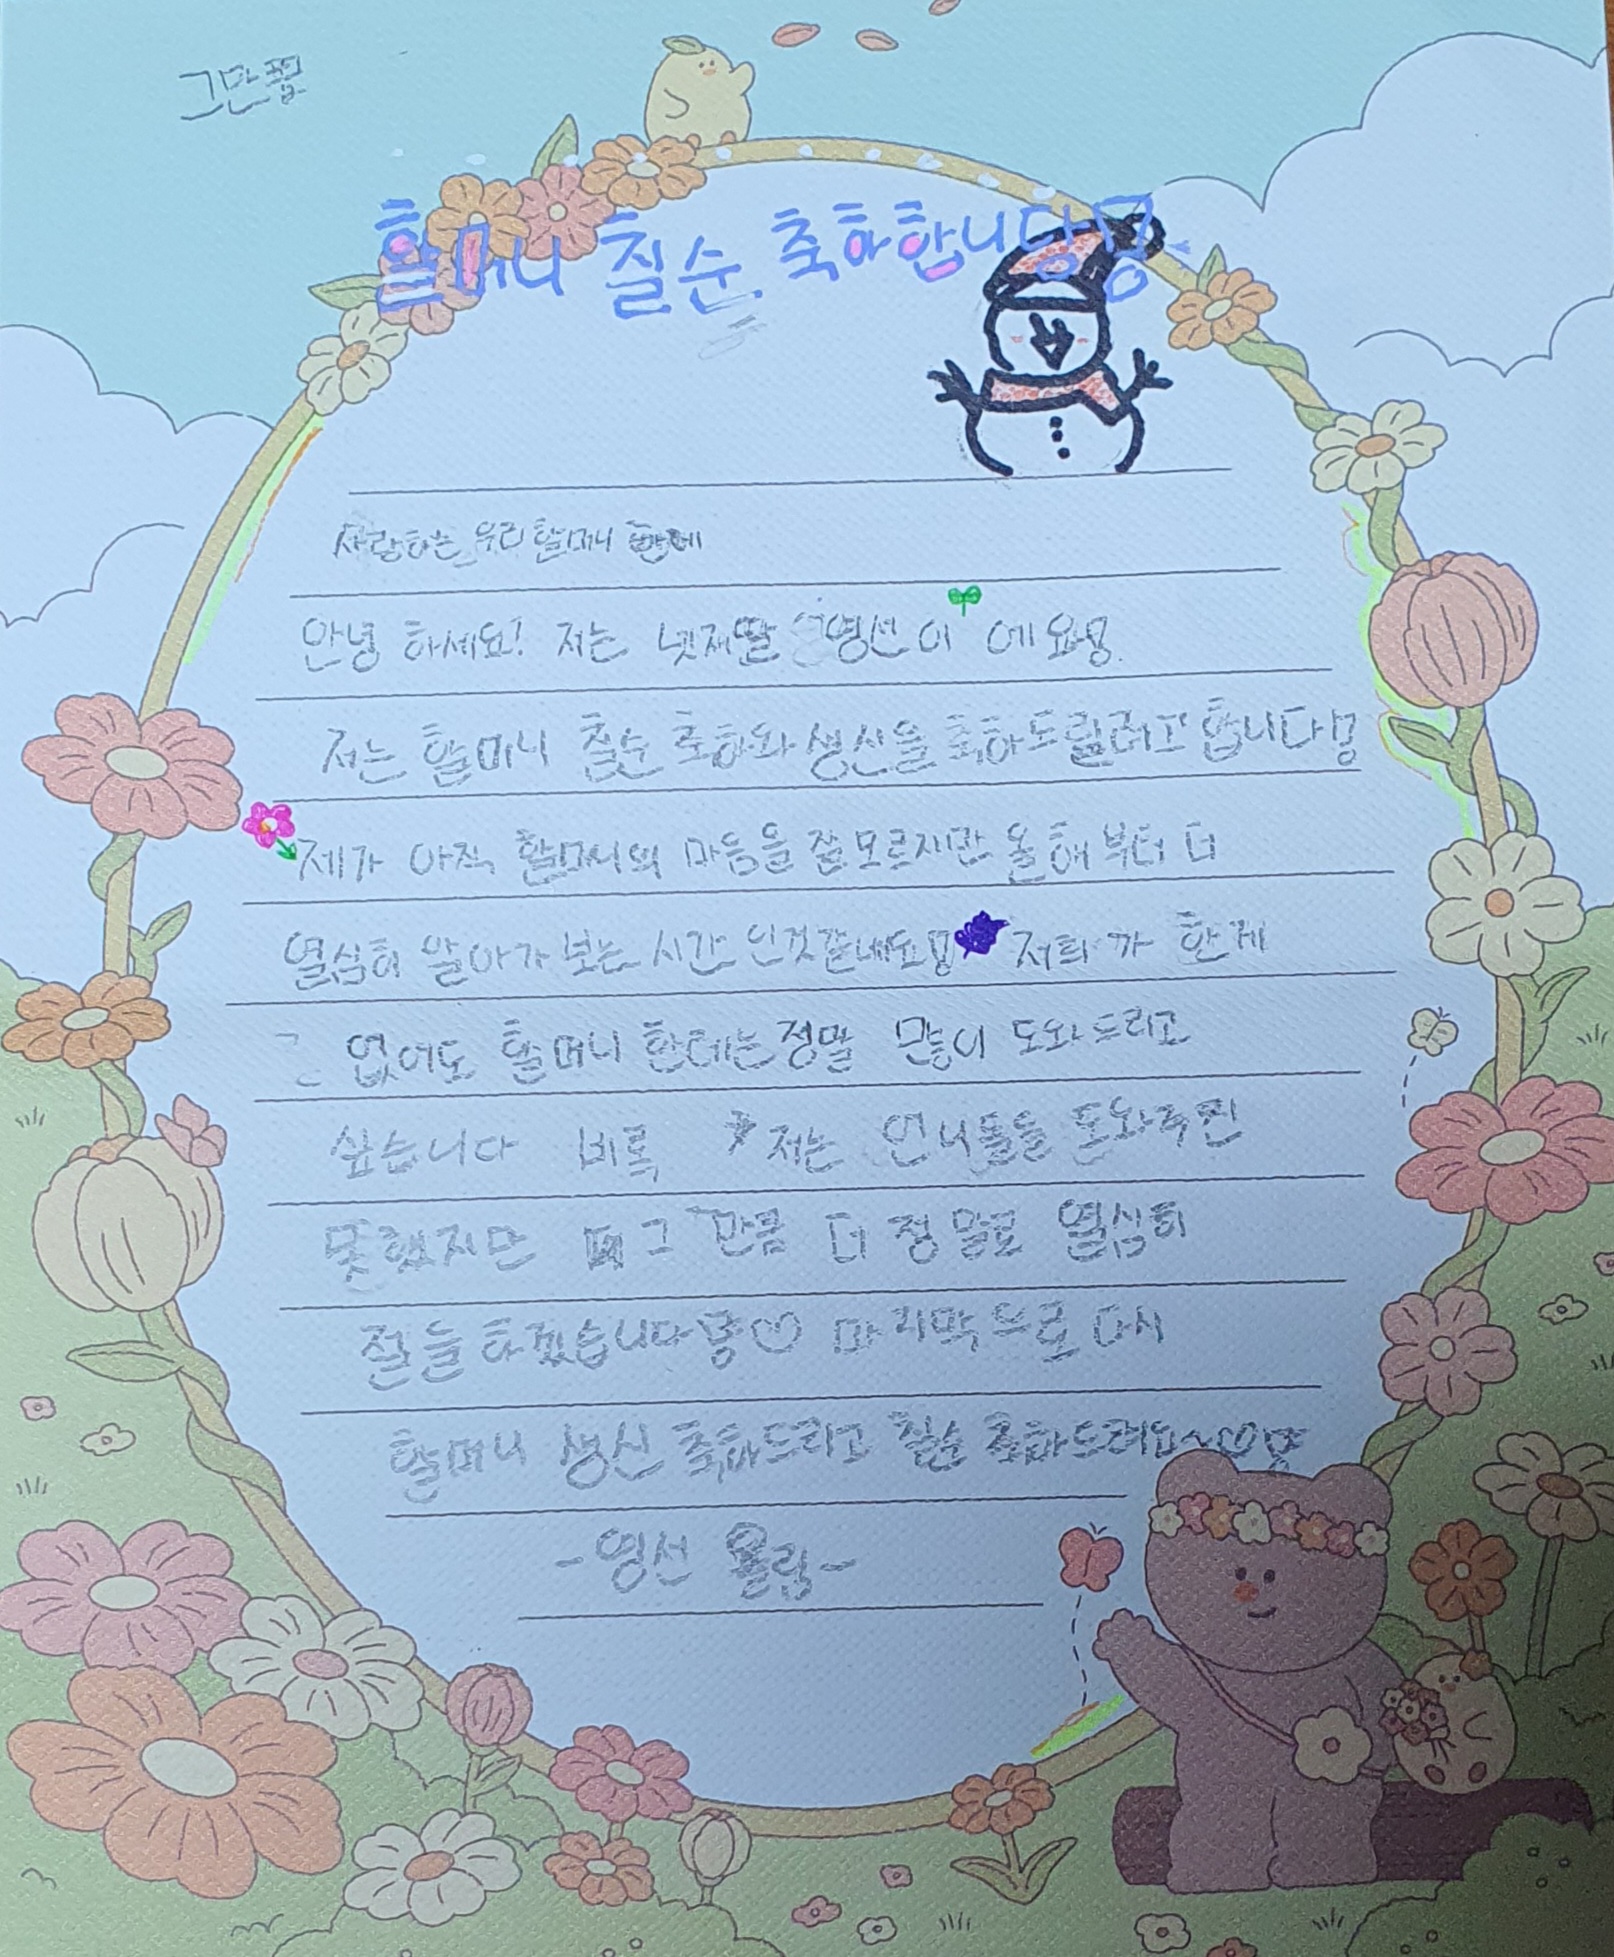 할머니 칠순 축하합니당!
사랑하는 우리 할머니 한테
안녕 하세요! 저는 넷째딸 영선이 에요!
저는 할머니 칠순 축하와 생신을 축하드릴려고 합니다!
제가 아직 할머니의 마음을 잘 모르지만 올해 부터 더
열심히 알아가 보는 시간 인것같네요! 저희 가 한게
없어도 할머니 한테는 정말 많이 도와드리고
싶습니다 비록 저는 언니들을 도와주진
못했지만 그 만큼 더 정말로 열심히
절을 하겠습니다 ♡ 마지막으로 다시
할머니 생신 축하드리고 칠순 축하드려요~♡
-영선 올림-